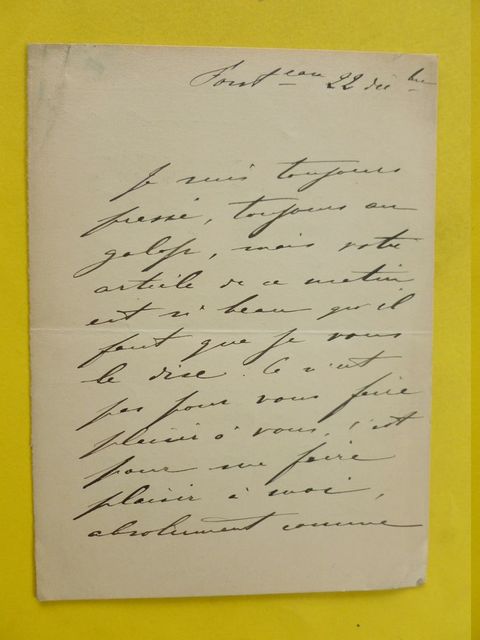 Font^eau 22 déc^bre
Je suis toujours
pressé, toujours au
galop, mais votre
article de ce matin
est si beau qu'il
faut que je vous
le dise. Ce n'est
pas pour vous faire
plaisir à vous, c'est
pour me faire
plaisir à moi,
absolument comme